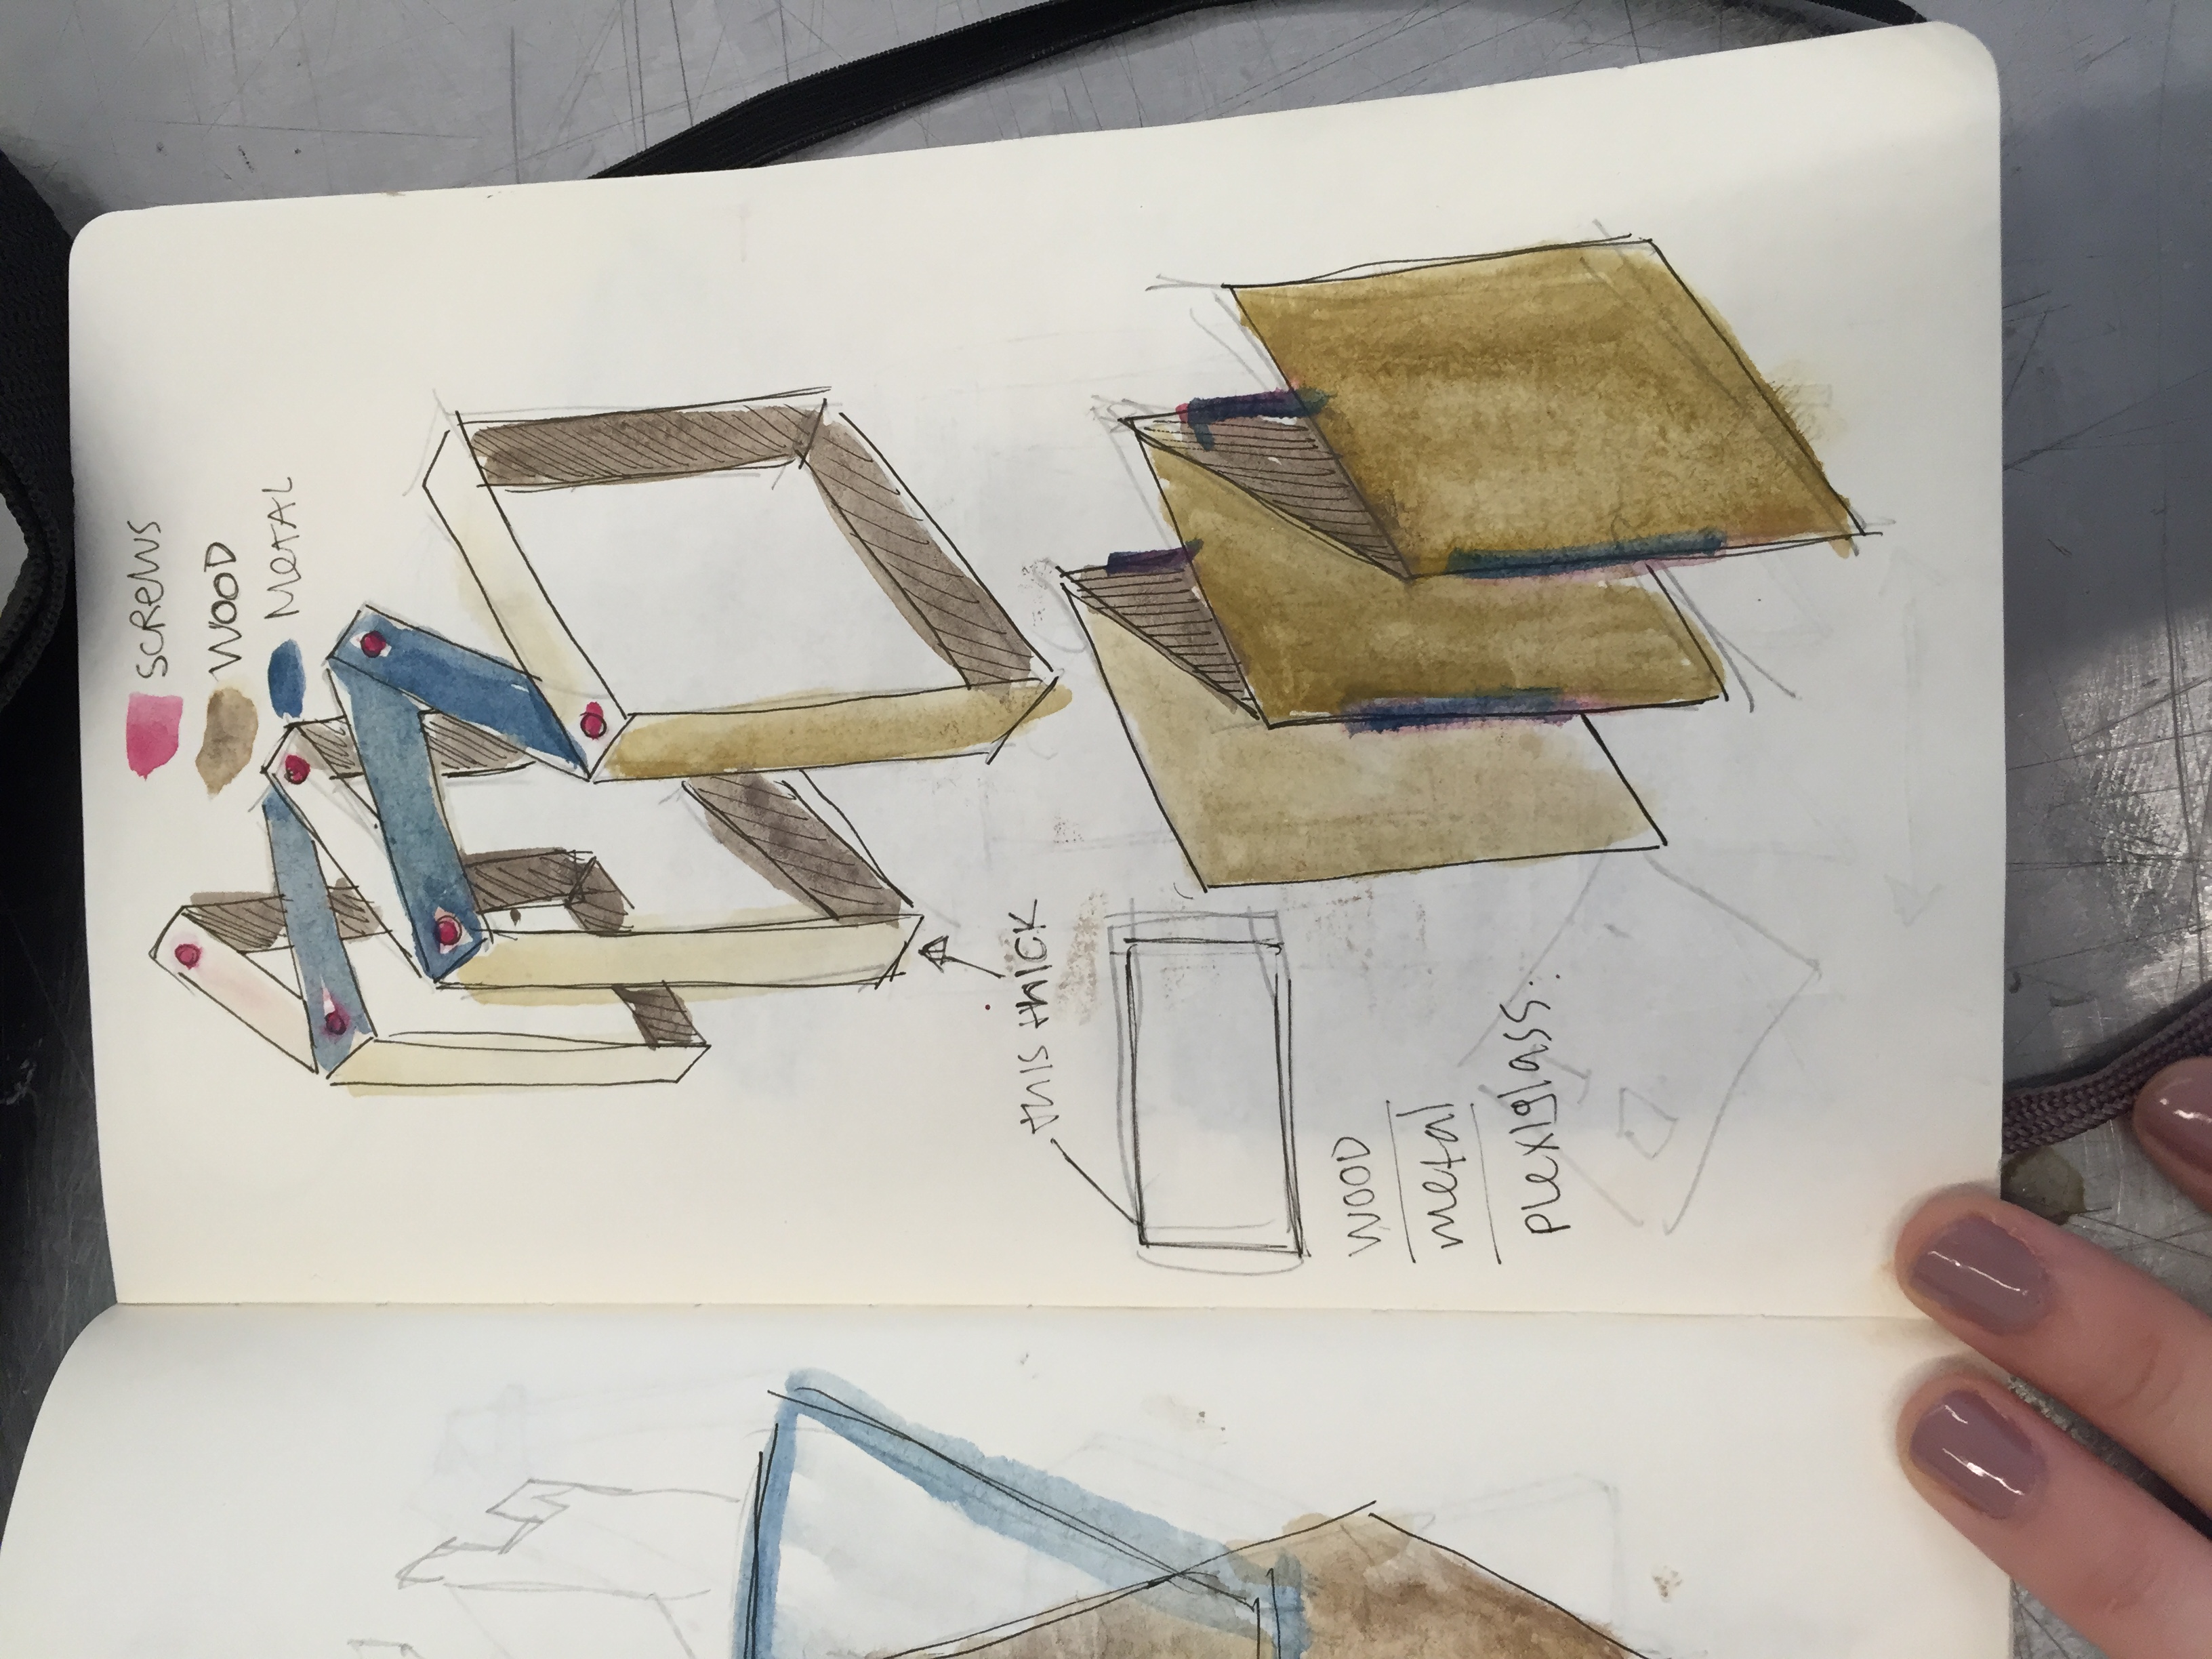 SCREWS
WOOD
METAL
this thick
WOOD
metal
plexiglass.